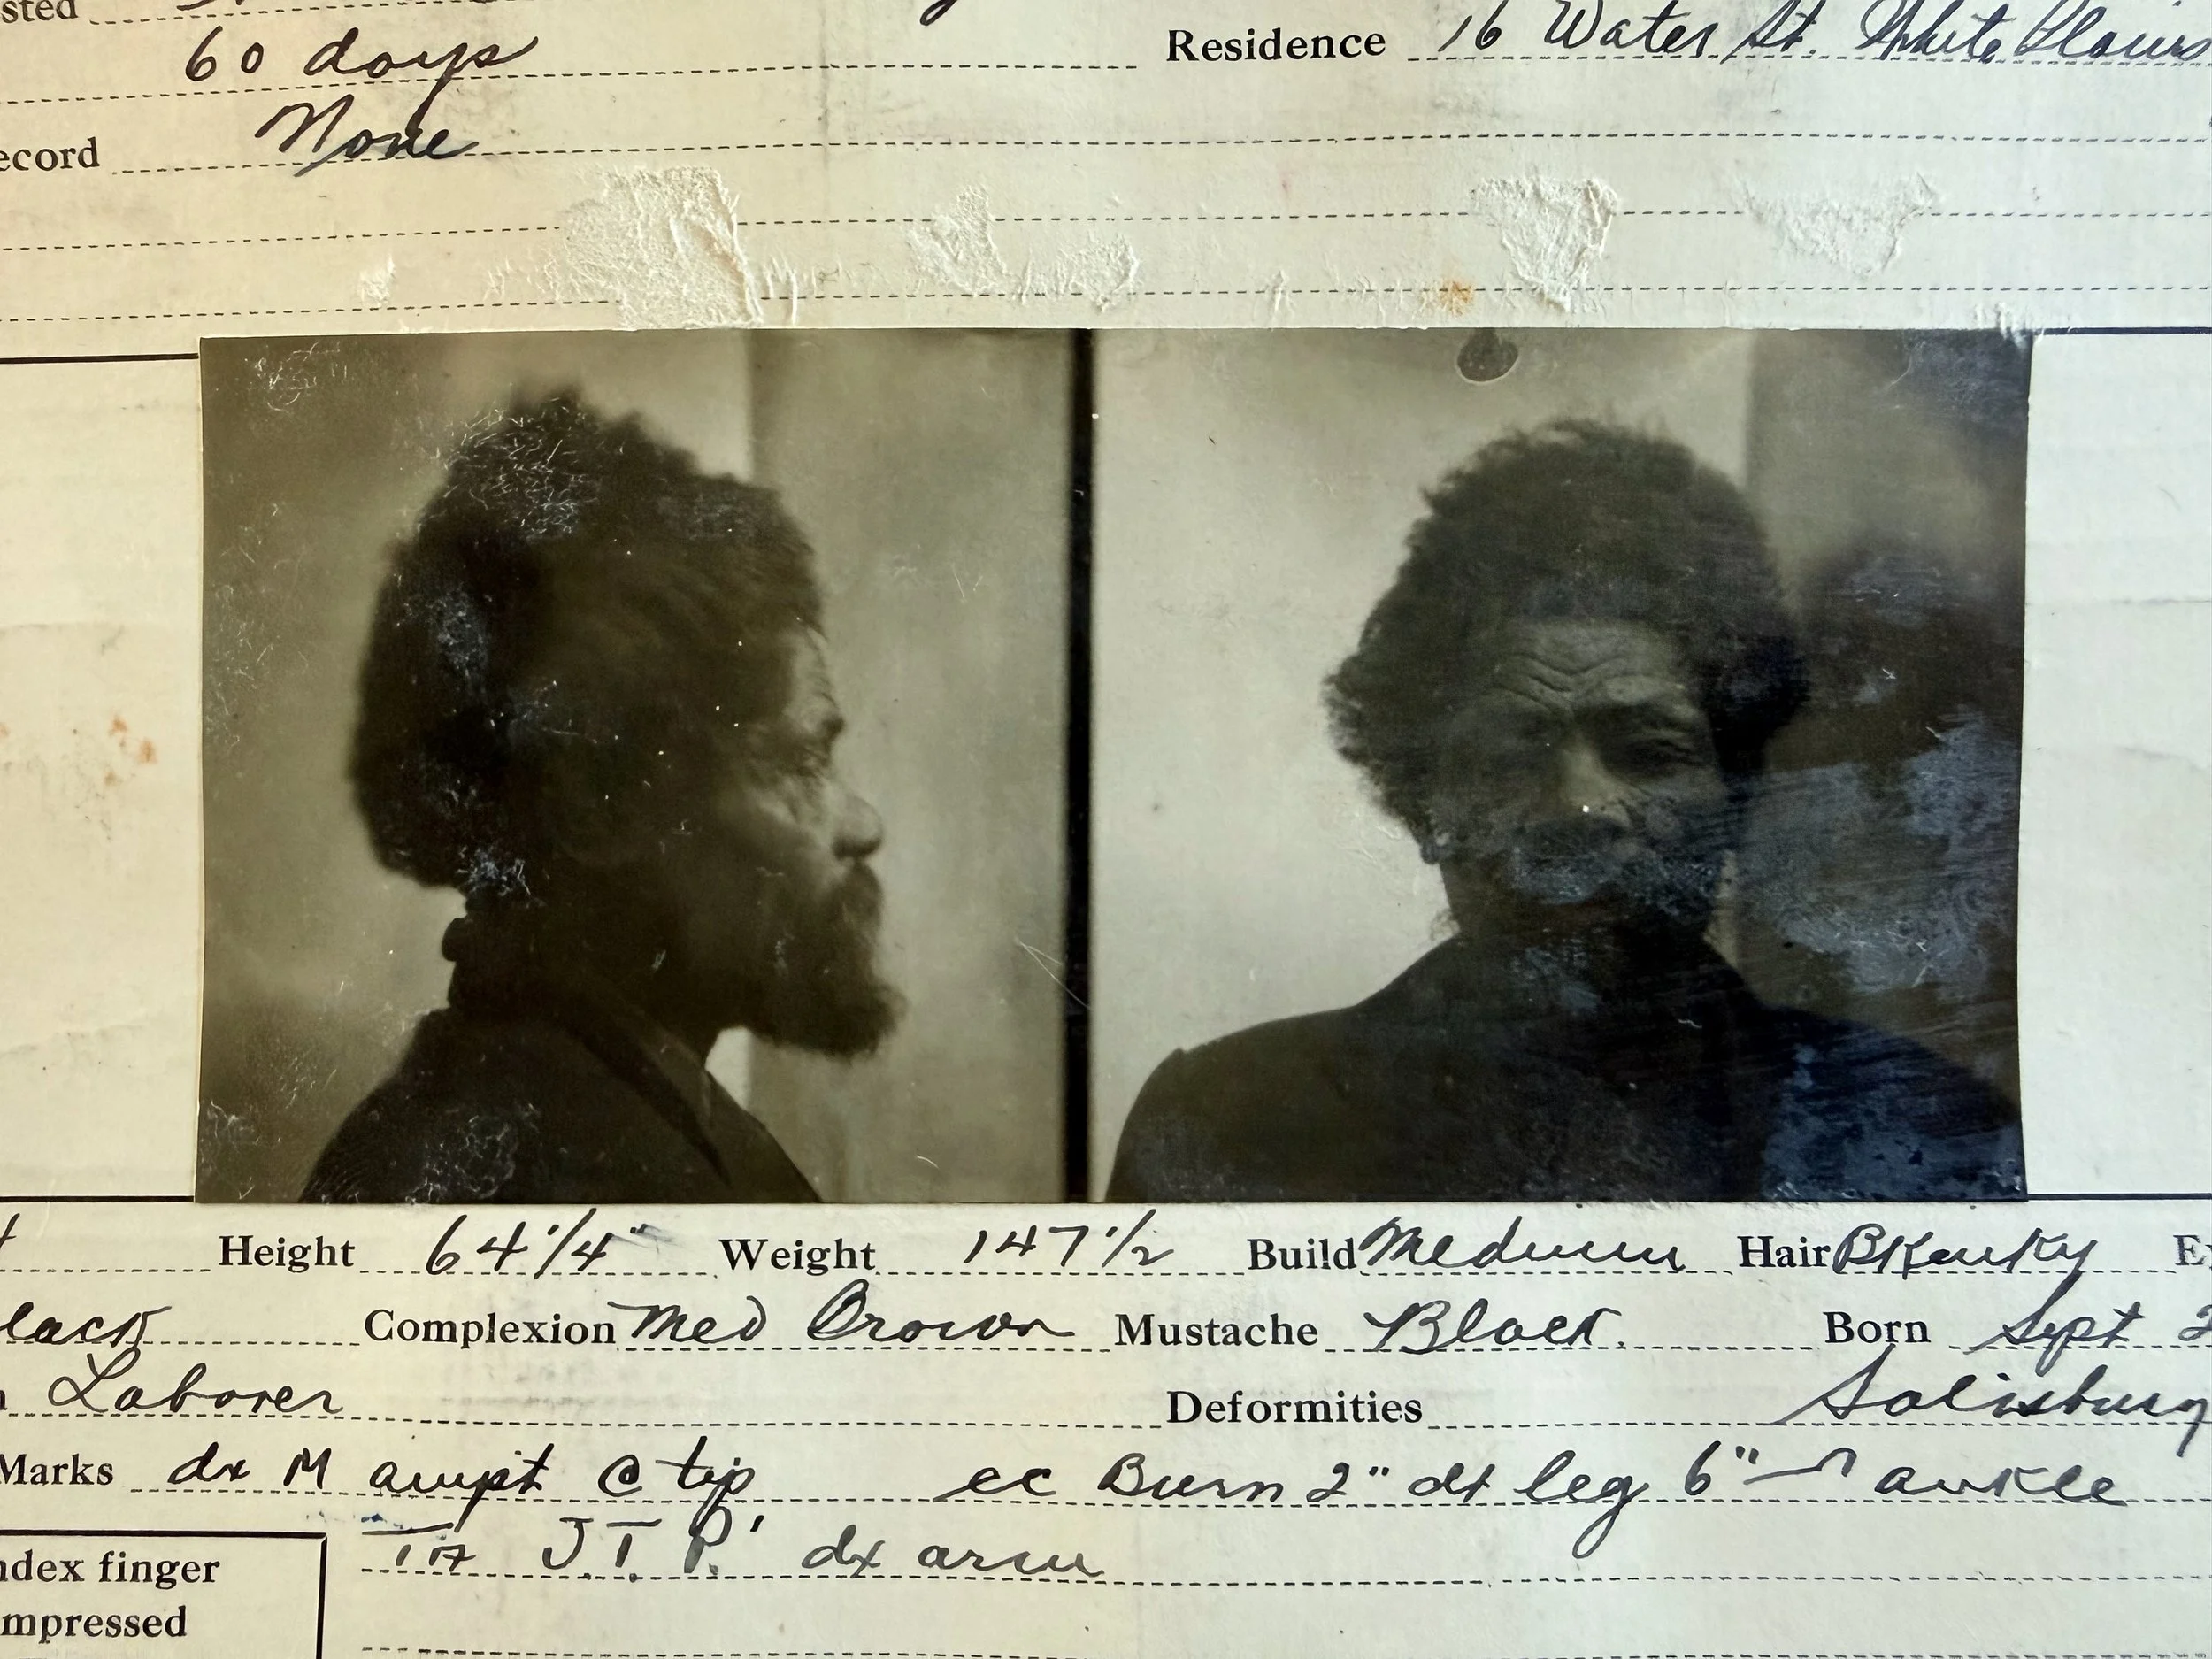 sted
60 days
Residence 16 Water St. White Plains
ecord None
Height 64 1/4" Weight 147 1/2 Build Medium Hair Bk Kinky E
lack Complexion Med Brown Mustache Black. Born Sept 2
n Laborer Deformities Salisbury
Marks dx M ampt @ tip ec Burn 2" dx leg 6" ankle
J.T.P. dx arm
ndex finger
mpressed